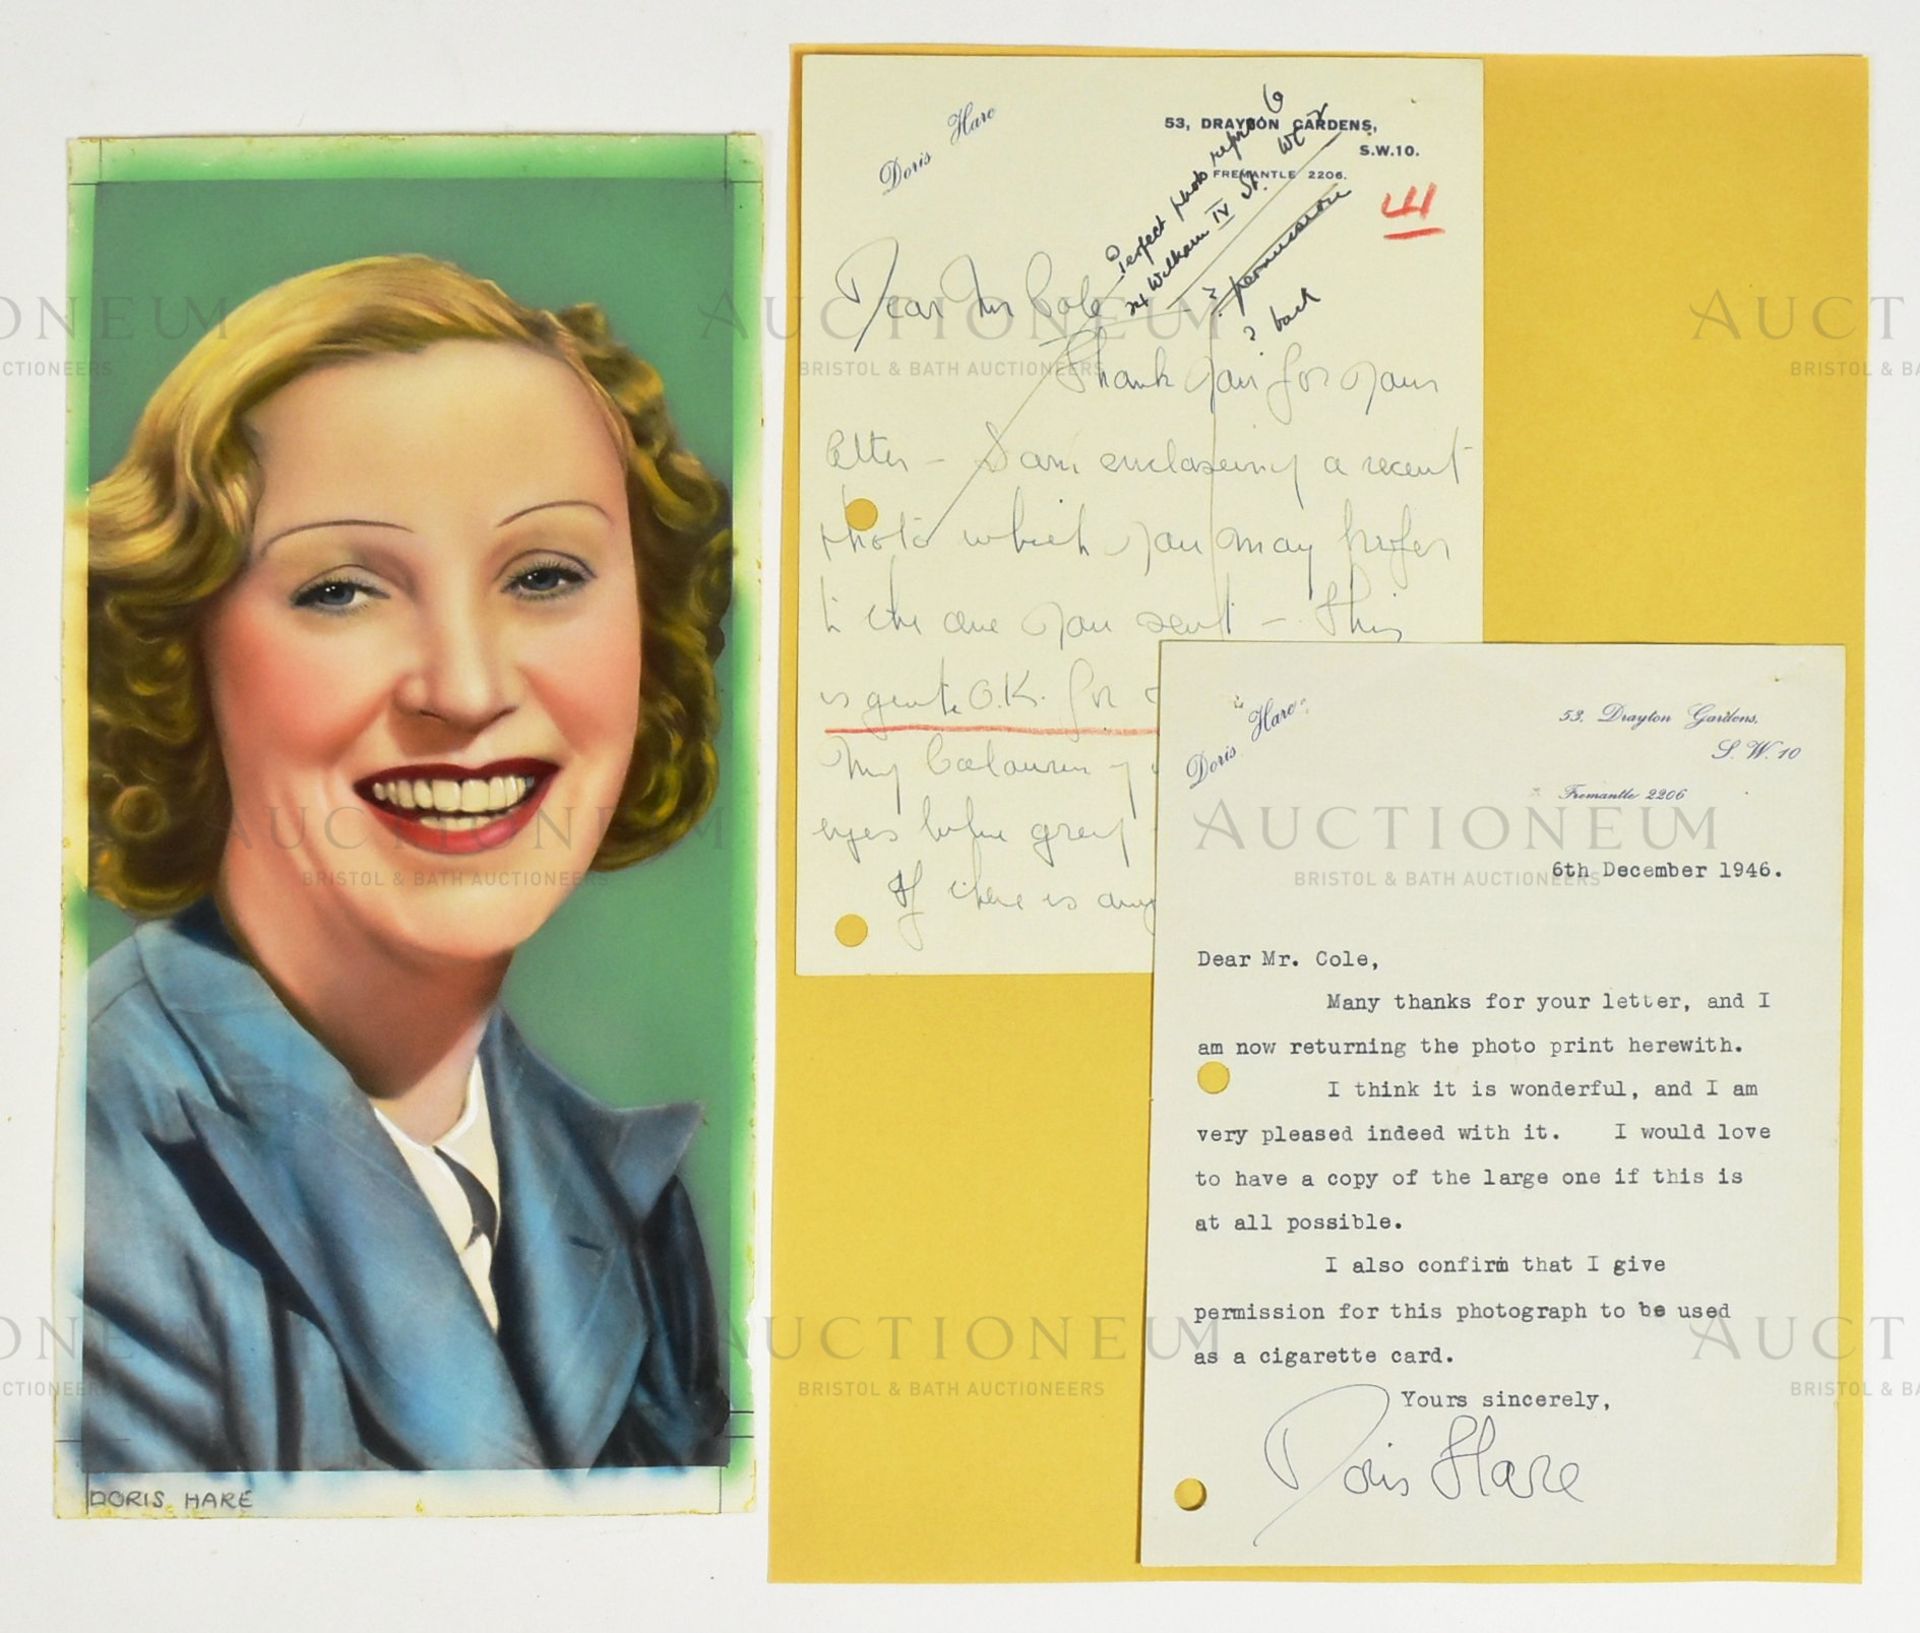 DORIS HARE
Doris Hare
53, DRAYTON GARDENS,
S.W.10.
FREMANTLE 2206.
Perfect photo
24 William IV St. WC2
? permission
? back
E
Dear Mr Cole
Thank you for your
letter – I am enclosing a recent
photo which you may prefer
to the one you sent – This
is quite O.K. for
My Colouring
eyes blue grey
If there is any
Doris Hare
53, Drayton Gardens,
S.W.10
Fremantle 2206
6th December 1946.
Dear Mr. Cole,
Many thanks for your letter, and I
am now returning the photo print herewith.
I think it is wonderful, and I am
very pleased indeed with it. I would love
to have a copy of the large one if this is
at all possible.
I also confirm that I give
permission for this photograph to be used
as a cigarette card.
Yours sincerely,
Doris Hare
AUCTIONEUM
BRISTOL & BATH AUCTIONEERS